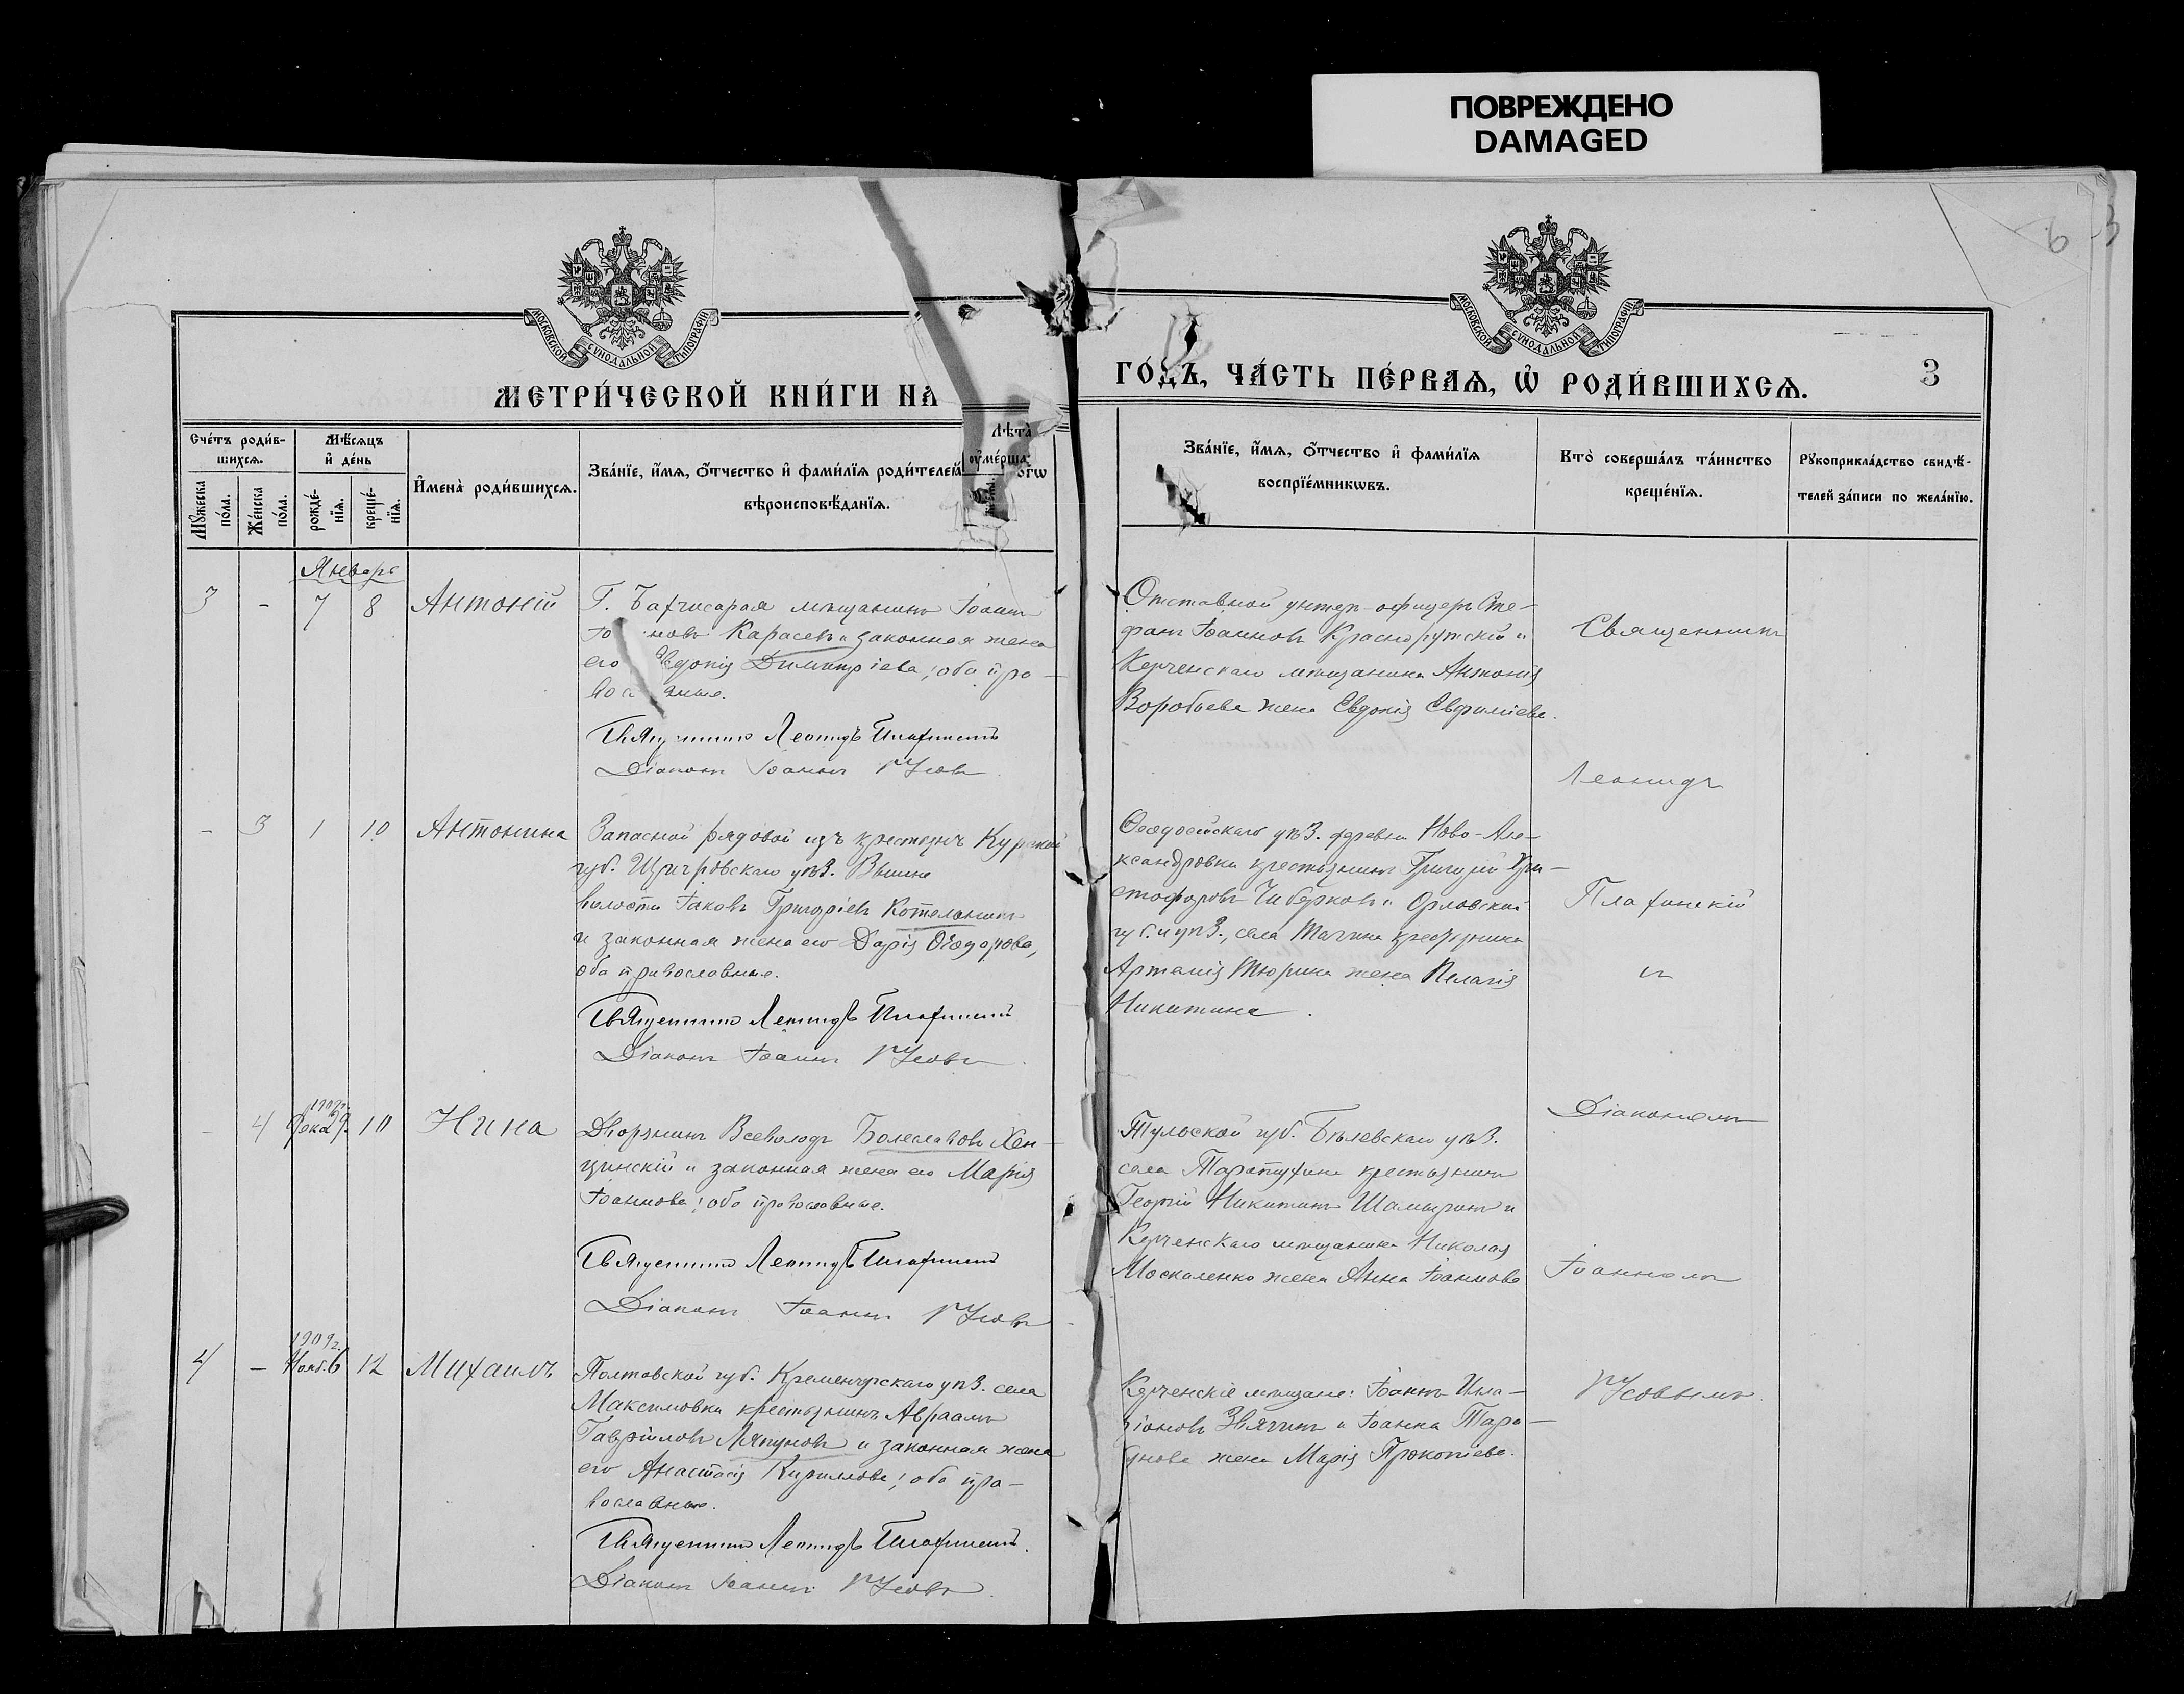 ПОВРЕЖДЕНО
DAMAGED
6
3
МОСКОВСКОЙ СѴНОДАЛЬНОЙ ТИПОГРАФІИ
МОСКОВСКОЙ СѴНОДАЛЬНОЙ ТИПОГРАФІИ
МЕТРИ́ЧЕСКОЙ КНИ́ГИ НА
ГО́ДЪ, ЧА́СТЬ ПЕ́РВАѦ, Ѡ҆ РОДИ́ВШИХСѦ.
3
Сче́тъ роди́в-
шихсѧ.
Мꙋ́жеска по́ла.
Же́нска по́ла.
Мѣ́сѧцъ и҆ де́нь
рожде́нїѧ.
креще́нїѧ.
И҆мена̀ роди́вшихсѧ.
Зва́нїе, и҆́мѧ, о҆́тчество и҆ фами́лїѧ роди́телей
вѣроисповѣ́данїѧ.
Лѣта̀
ᲂу҆ме́рша
огѡ
Зва́нїе, и҆́мѧ, о҆́тчество и҆ фами́лїѧ
воспрїе́мникѡвъ.
Кто̀ соверша́лъ та́инство
креще́нїѧ.
Рꙋкоприкла́дство свидѣ́-
телей за́писи по жела́нїю.
Январь
3 - 7 8 Антоній
Г. Бахчисарая мѣщанинъ Іоаннъ
новъ Карасевъ и законная жена
его Евдокія Димитріева, оба пра-
вос авные.
Священникъ Леонидъ Плафинскій
Діаконъ Іоаннъ Усовъ
Отставной унтеръ-офицеръ Сте-
фанъ Іоанновъ Краснорутскій и
Керченскаго мѣщанина Антонія
Воробьева жена Евдокія Евфиміева.
Священникъ
Леонидъ
- 3 1 10 Антонина
Запасной рядовой изъ крестьянъ Курской
губ. Щигровскаго уѣз. Вышне
волости Іаковъ Григоріевъ Котельнин
и законная жена его Дарія Ѳеодорова,
оба православные.
Священникъ Леонидъ Плафинскій
Діаконъ Іоаннъ Усовъ
Ѳеодосійскаго уѣз. деревни Ново-Але-
ксандровки крестьянинъ Григорій Хри-
стофоровъ Чиберковъ и Орловской
губ. и уѣз., села Тагина крестьянина
Артемія Тюрина жена Пелагія
Никитина.
Плафинскій
съ
- 4 1909г. Дек. 29. 10 Нина
Дворянинъ Всеволодъ Болеславовъ Хен-
цинскій и законная жена его Марія
Іоаннова, оба православные.
Священникъ Леонидъ Плафинскій
Діаконъ Іоаннъ Усовъ
Тульской губ. Бѣлевскаго уѣз.
села Таратухина крестьянинъ
Георгій Никитинъ Шамыринъ и
Керченскаго мѣщанина Николая
Москаленко жена Анна Іоаннова
Діакономъ
Іоанномъ
4 - 1909г. Нояб. 6 12 Михаилъ
Полтавской губ. Кременчугскаго уѣз. села
Максимовки крестьянинъ Авраамъ
Гавріиловъ Ляпуновъ и законная жена
его Анастасія Кириллова, оба пра-
вославные.
Священникъ Леонидъ Плафинскій.
Діаконъ Іоаннъ Усовъ
Керченскіе мѣщане: Іоаннъ Ила-
ріоновъ Звягинъ и Іоанна Тара-
жена Марія Прокопіева.
Усовымъ.